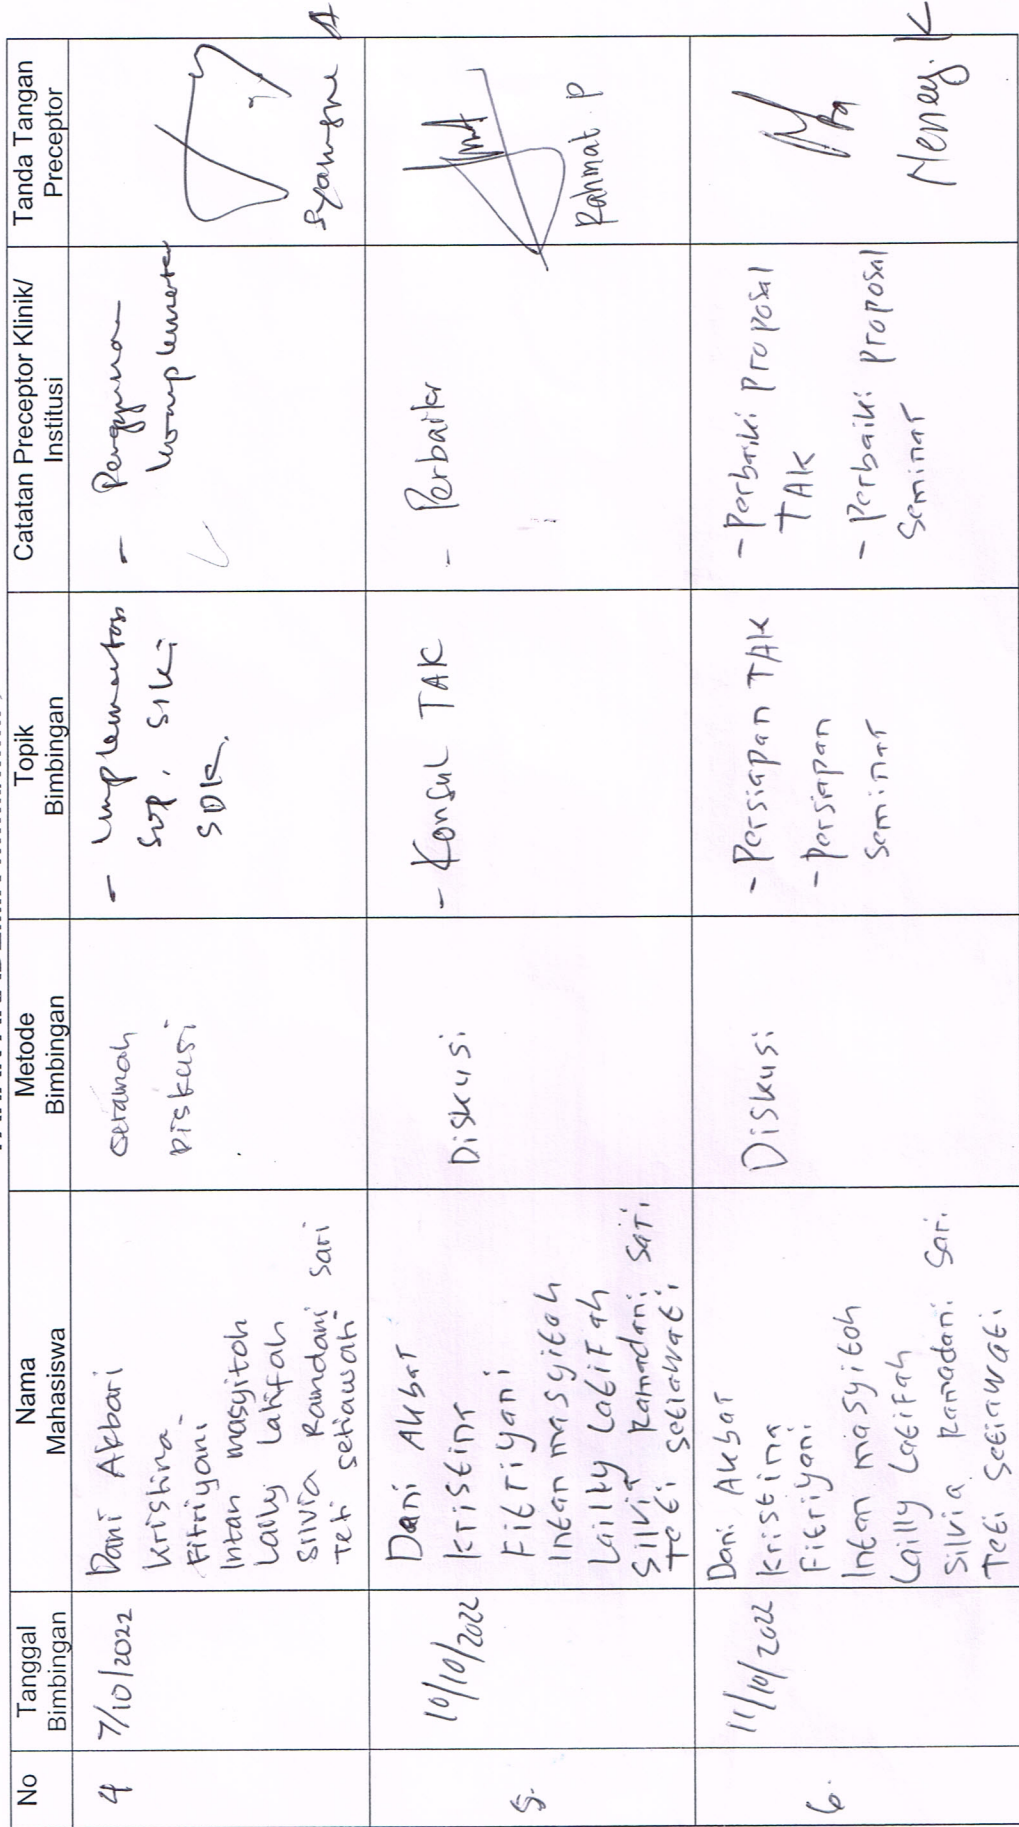 No
Tanggal
Bimbingan
Nama
Mahasiswa
Metode
Bimbingan
Topik
Bimbingan
Catatan Preceptor Klinik/
Institusi
Tanda Tangan
Preceptor
4
7/10/2022
Dani Akbari
Kristina
Fitriyani
Intan masyitoh
Lailly Latifah
Silvia Ramdani Sari
Teti setiawati
ceramah
Diskusi
- Implementasi
SOP, SIKI
SDKI
- Penggunaan
5.
10/10/2022
Dani Akbar
Kristina
Fitriyani
Intan masyitoh
Lailly Latifah
Silvia Ramadani Sari
Teti Setiawati
Diskusi
- Konsul TAK
- Perbaiki
Rahmat. P
6.
11/10/2022
Dani Akbar
Kristina
Fitriyani
Intan masyitoh
Lailly Latifah
Silvia Ramadani Sari
Teti Setiawati
Diskusi
- Persiapan TAK
- Persiapan
Seminar
- Perbaiki Proposal
TAK
- Perbaiki Proposal
Seminar